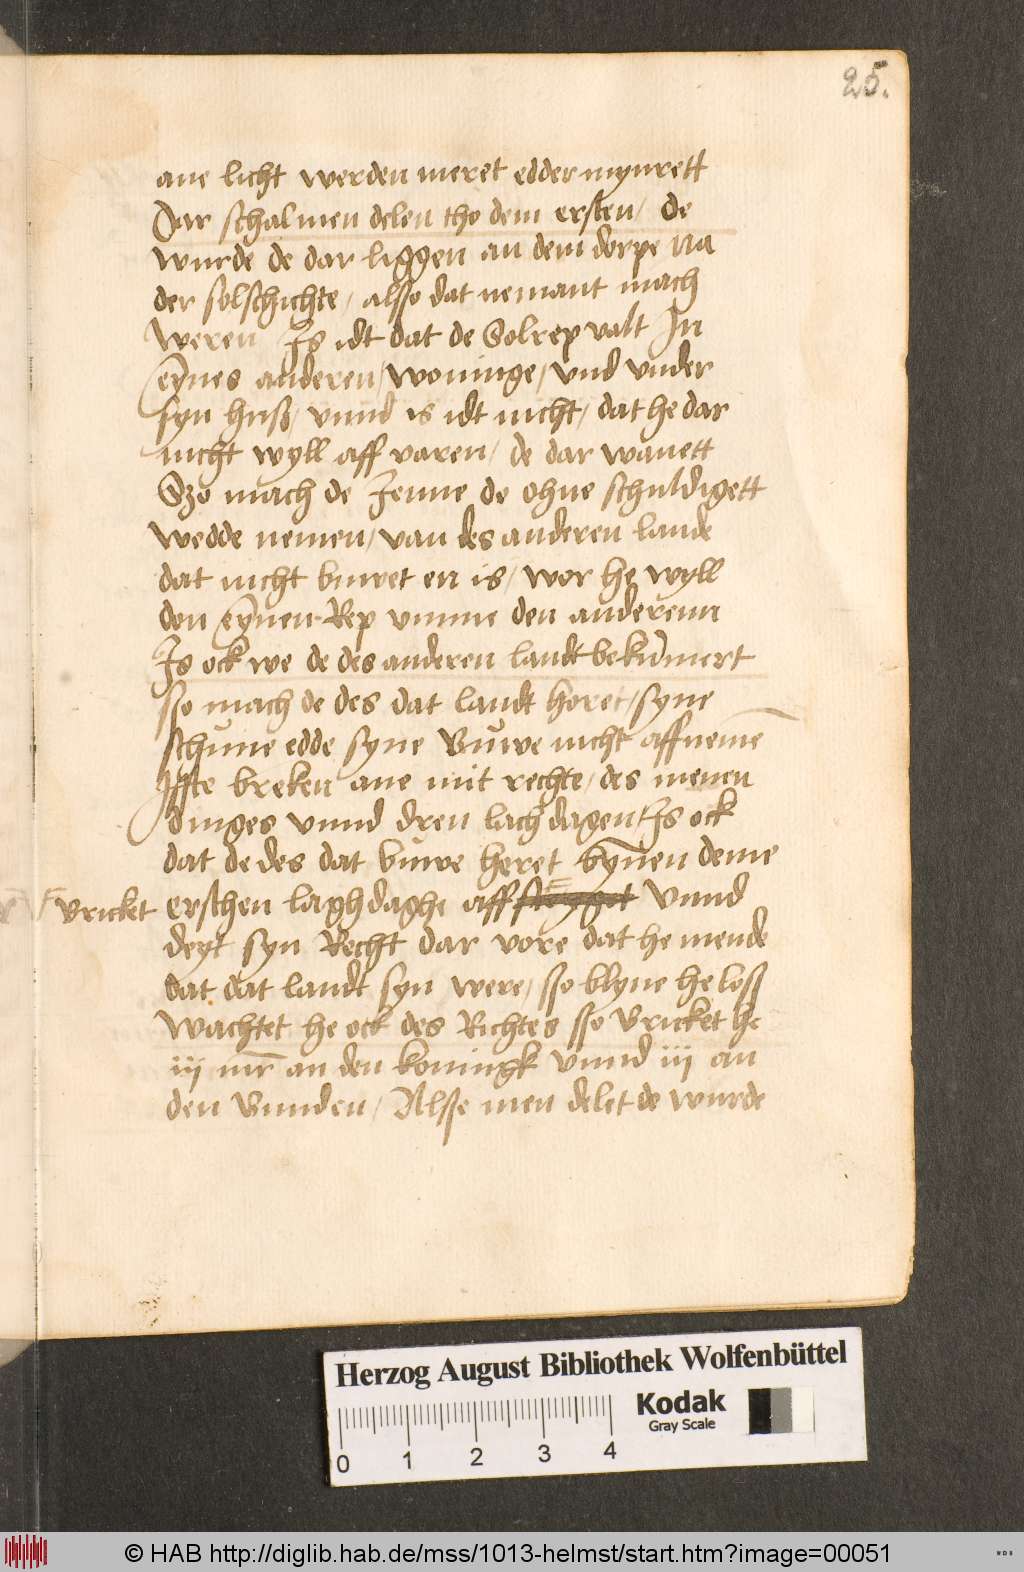 25.
ane licht werden meret edder mynrett
Dar schal men delen tho dem ersten / de
wurde de dar liggen an dem dorpe na
der solschichte / alsso dat nemant mach
weren Js idt dat de Solrep valt Jn
eynes anderen / woninge / vnd vnder
syn huß / vnnd is idt nicht / dat he dar
nicht wyll aff varen / de dar wanett
Szo mach de Jenne de ohne schuldigett
wedde nemen / van des anderen lande
dat nicht buwet en is / wor he wyll
den eynen Rep vmme den anderenn
Js ock we de des anderen landt bekumert
sso mach de des dat landt horet / syne
schune edde syne Buwe nicht affneme
Iffte breken ane mit rechte / des menen
dinges vnnd dren lach dagen Js ock
dat de des dat buwe heret bynnen deme
vricket erschen laghdaghe aff vnnd
deyt syn Recht dar vore dat he mende
dat dat landt syn were / sso blyue he loss
Wachtet he ock des Richtes sso vricket he
iij mr an den koningk vnnd iij an
den Bunden / Alsse men delet de wurde
Herzog August Bibliothek Wolfenbüttel
Kodak
Gray Scale
0 1 2 3 4
© HAB http://diglib.hab.de/mss/1013-helmst/start.htm?image=00051